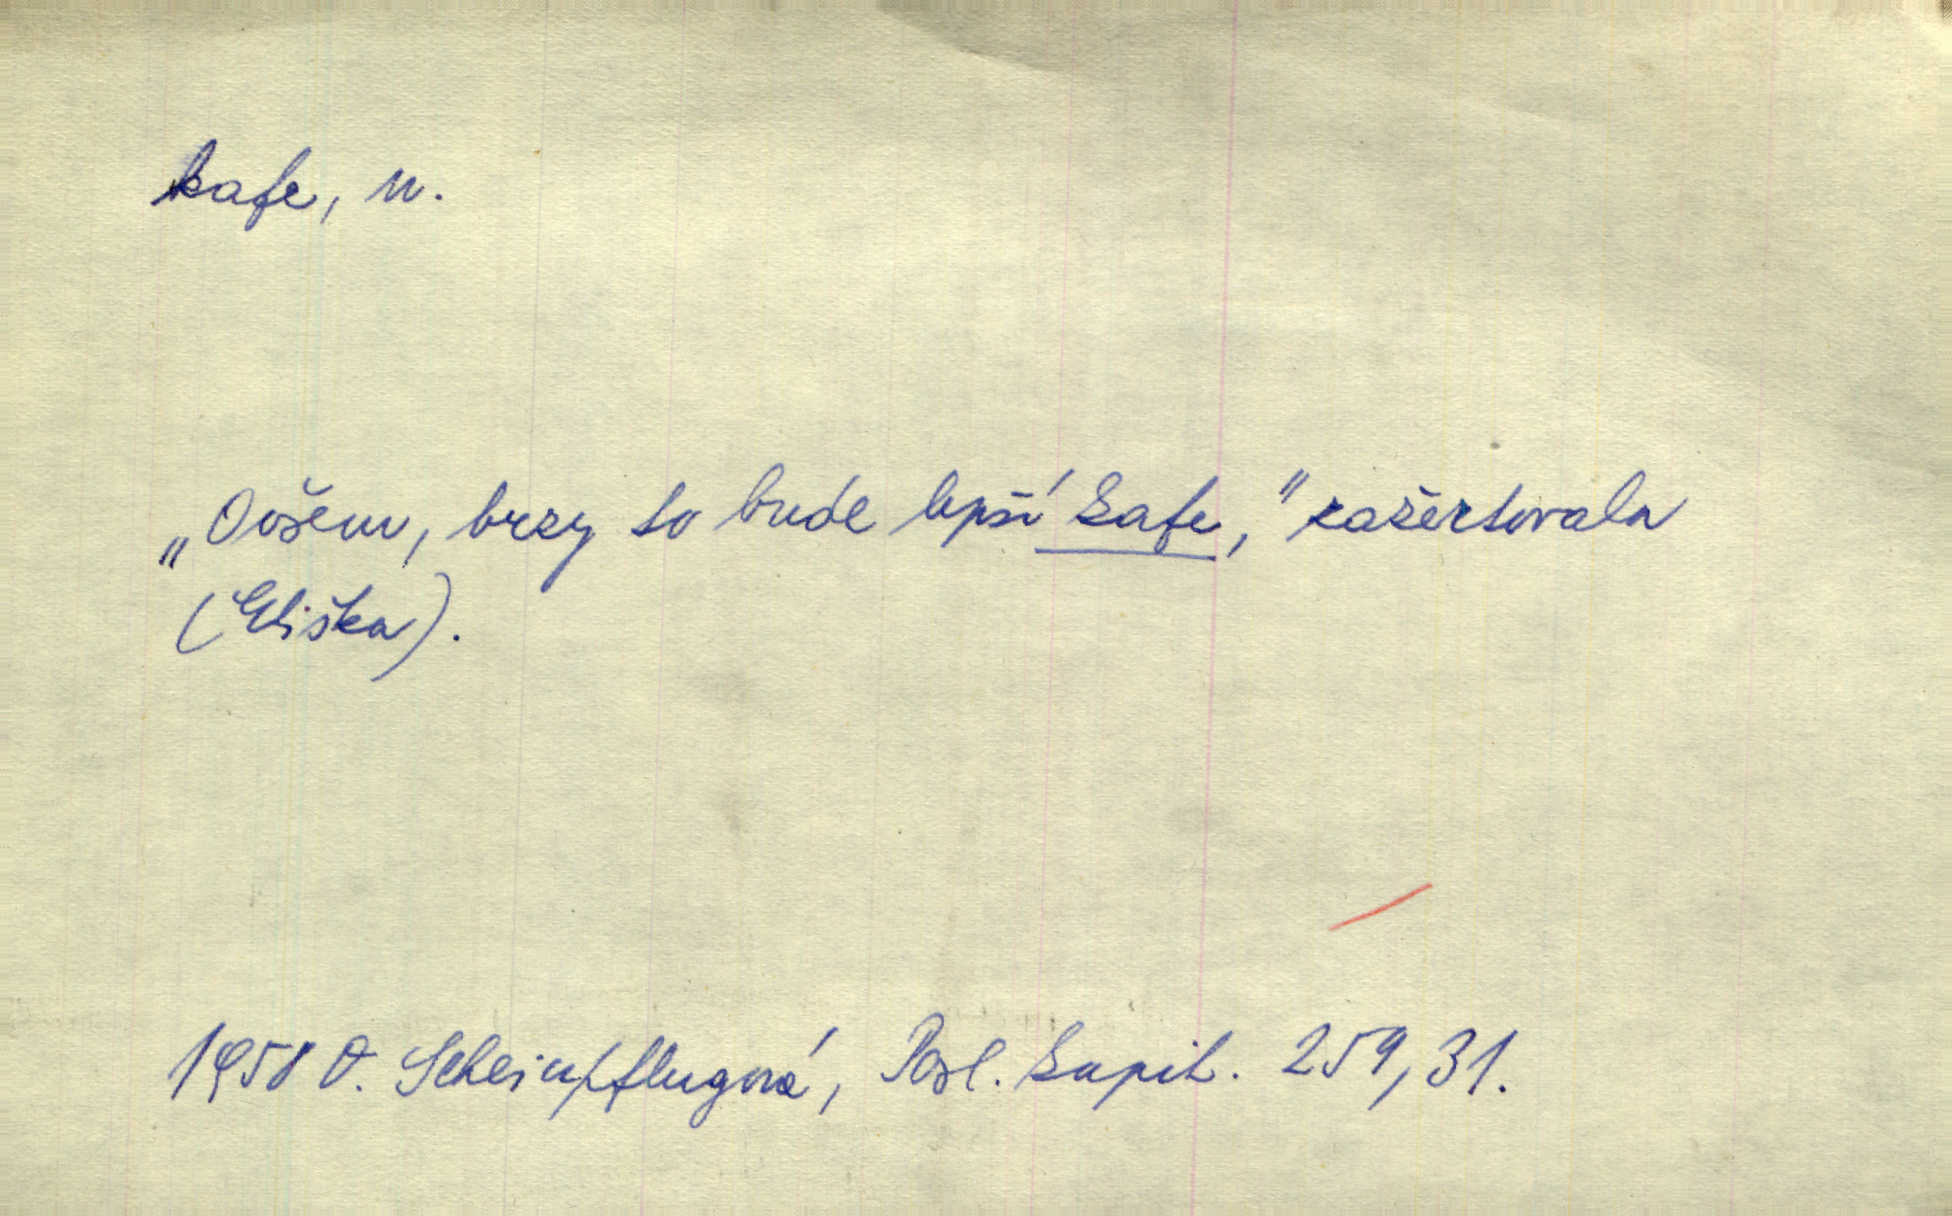 kafe, n.
„Ovšem, brzy to bude lepší kafe,“ zažertovala
(Eliška).
1958 O. Scheinpflugová, Posl. kapit. 259, 31.